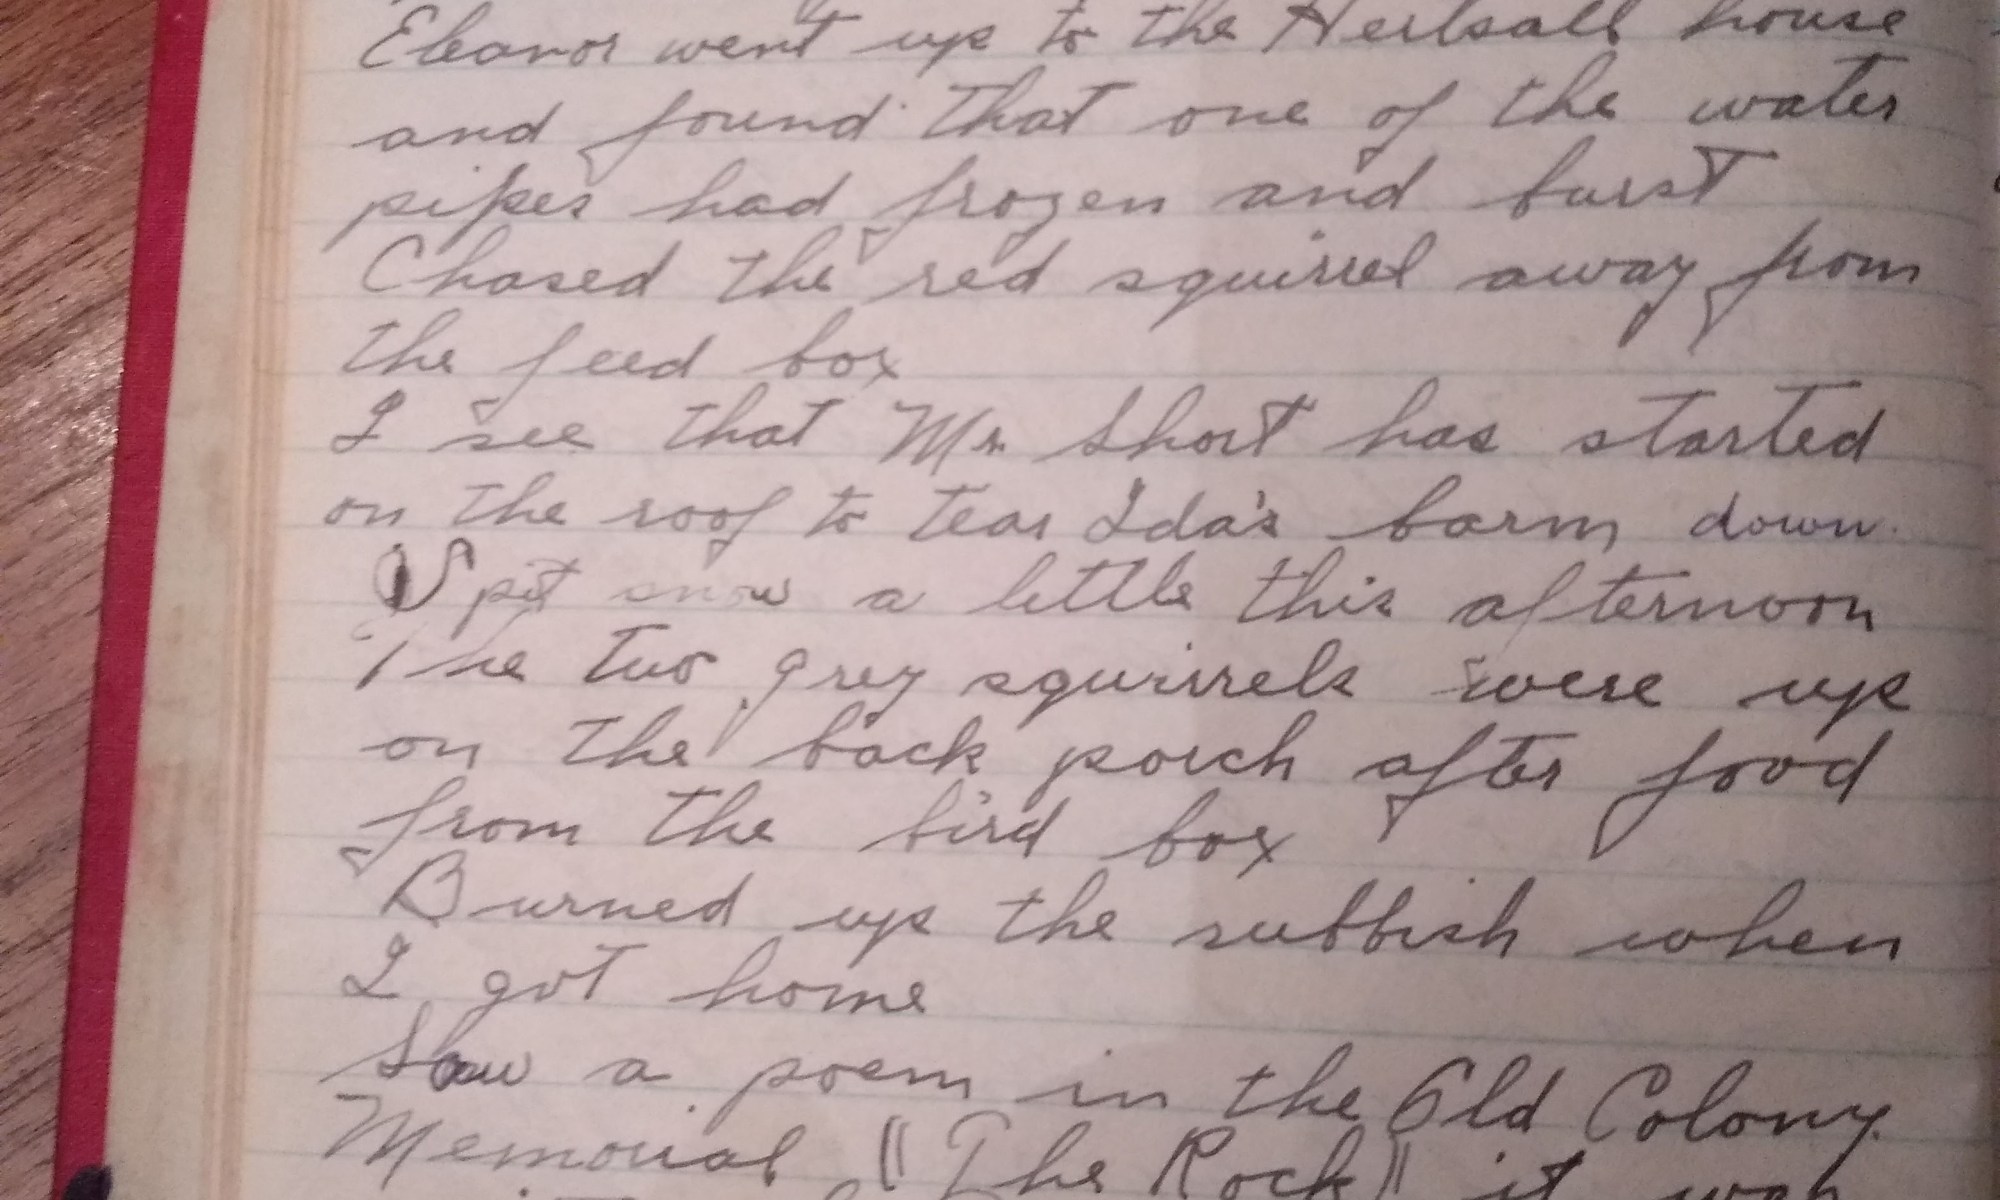 Eleanor went up to the house
and found that one of the water
pipes had frozen and burst
Chased the red squirrel away from
the feed box
I see that Mr Short has started
on the roof to tear Ida's barm down.
Spit snow a little this afternoon
The two grey squirrels were up
on the back porch after food
from the bird box
Burned up the rubbish when
I got home
Saw a poem in the Old Colony
Memorial "The Rock" it was